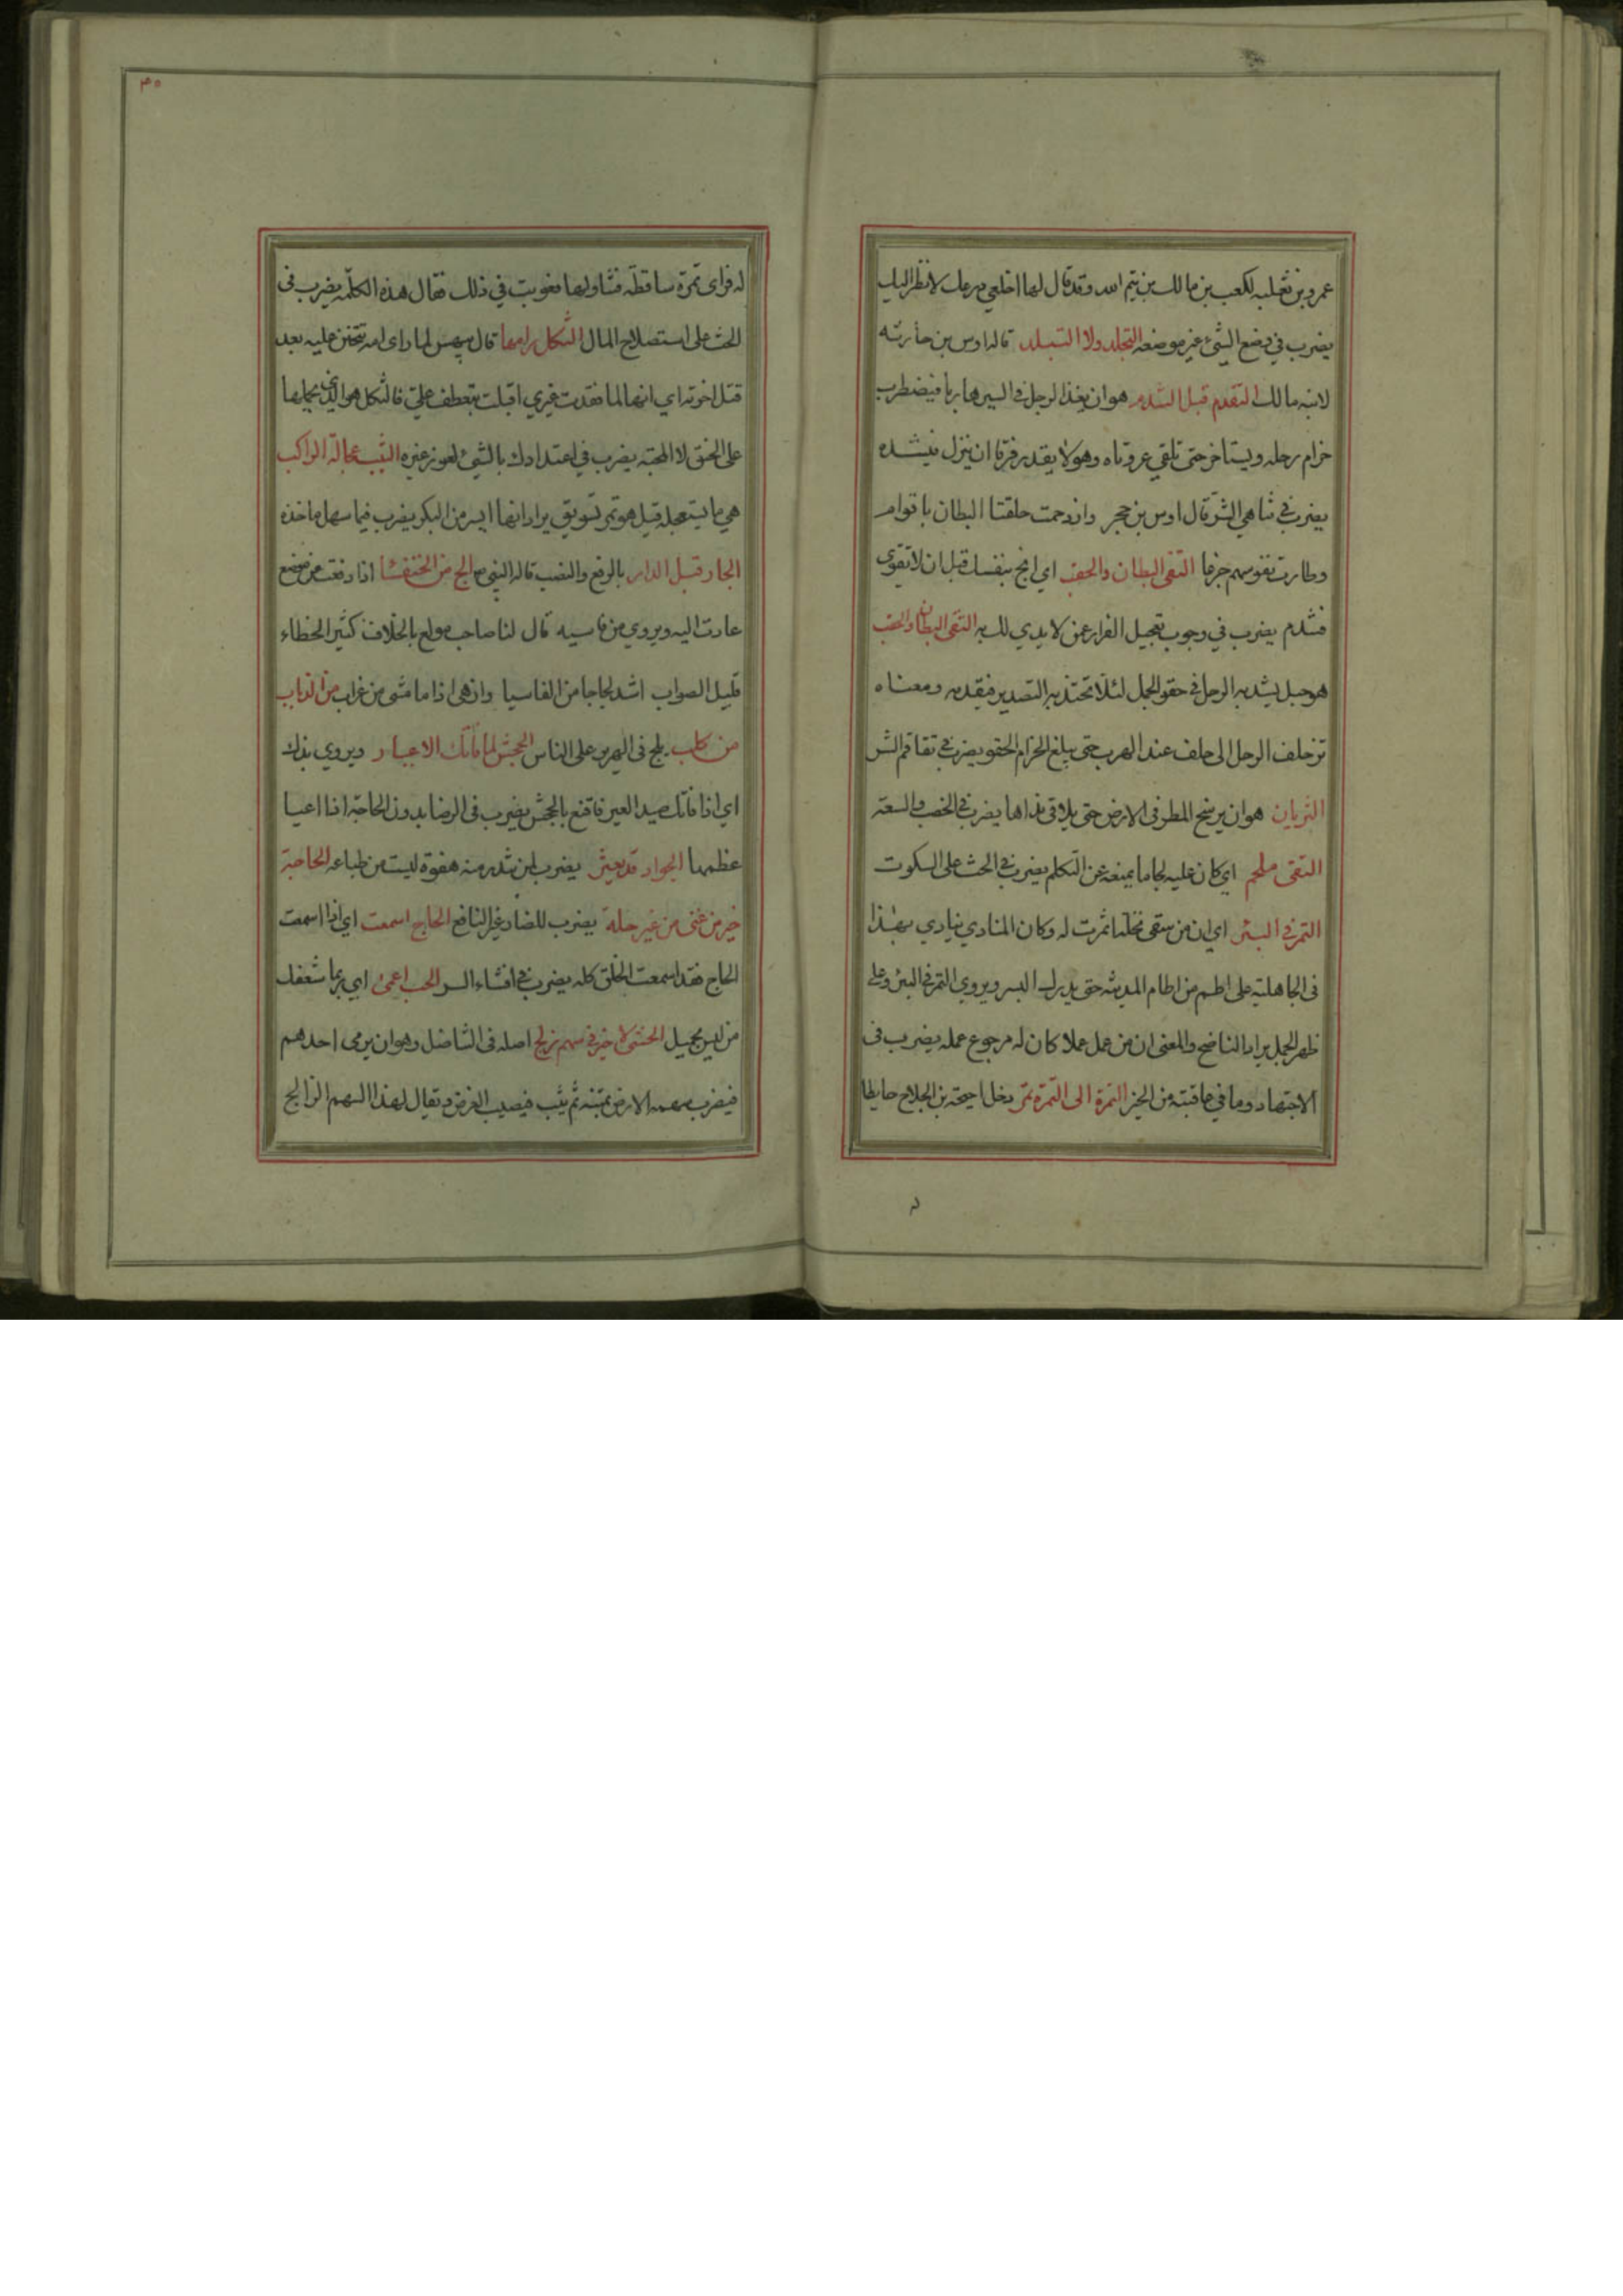 عمرو بن ثعلبه لكعب بن مالك بن تيم الله وقد قال لها اخلعي درعك لانظر اليك
يضرب في وضع الشئ غير موضعه التجلد ولا التبلد قاله اوس بن حارثه
لابنه مالك التقدم قبل التندم هو ان يغذ الرجل في السير هاربا فيضطرب
حزام رحله ويستاخر حتى تلقي عروتاه وهو لا يقدر فرقا ان ينزل فيشده
يضرب في تناهي الشر قال اوس بن حجر وازدحمت حلقتا البطان باقوام
وطارت نفوسهم جزعا التقى البطان والحقب اي انج بنفسك قبل ان لا تقوى
فتندم يضرب في وجوب تعجيل الفرار عمن لا يدي لك به التقى البطان والحقب
هو حبل يشد به الرحل في حقو الجمل لئلا يجتذبه التصدير فيقدمه ومعناه
تزحلف الرحل الى خلف عند الهرب حتى يبلغ الحزام الحقو يضرب في تفاقم الشر
الثريان هو ان يرسخ المطر في الارض حتى يلاقي نداها يضرب في الخصب والسعة
التقى ملجم اي كان عليه لجاما يمنعه عن التكلم يضرب في الحث على السكوت
التمر في البئر اي ان من سقى نخلها اثمرت له وكان المنادي ينادي بهذا
في الجاهلية على اطم من اطام المدينة حتى يدرك البسر ويروي التمر في البئر وعلى
ظهر الجمل يراد الناضح والمعنى ان من عمل عملا كان له مرجوع عمله يضرب في
الاجتهاد وما في عاقبته من الخير التمرة الى التمرة تمر دخل احيحة بن الجلاح حايطا
له
٣٥
له فراى تمرة ساقطة فتناولها فعوتب في ذلك فقال هذه الكلمة يضرب في
الحث على استصلاح المال الثكل رامها قال بيهس لما راى امه تتحنن عليه بعد
قتل اخوته اي انها لما فقدت غيري اقبلت تتعطف علي فالثكل هو الذي يحملها
على الحنو لا المحبة يضرب في اعتدادك بالشئ لعوز غيره الثيب عجالة الراكب
هي ما يستعجله قيل هو تمر بسويق يراد انها ايسر من البكر يضرب فيما سهل ماخذه
الجار قبل الدار بالرفع والنصب قاله النبي ع الج من الخنفسا اذا دفعت من موضع
عادت اليه ويروي من فاسيه قال لنا صاحب مولع بالخلاف كثير الخطاء
قليل الصواب اشد لجاجا من الفاسيا وازهى اذا ما مشى من غراب من الذباب
من كلب يلج في الهرير على الناس الجحش لما فاتك الاعيار ويروي بذك
اي اذا فاتك صيد العير فاقنع بالجحش يضرب في الرضا بدون الحاجة اذا اعيا
عظمها الجواد قد يعثر يضرب لمن تندر منه هفوة ليست من طباعه الحاجة
خير من غنى من غير حله يضرب للضار غير النافع الحاج اسمعت اي اذا اسمعت
الحاج فقد اسمعت الخلق كله يضرب في افشاء السر الحب اعمى اي ربما شعفك
من ليس بجميل الحتنى لا خير في سهم زلج اصله في التناضل وهو ان يرمى احدهم
فيضرب سهمه الارض بمتنه ثم يثب فيصيب الغرض ويقال لهذا السهم الزالج